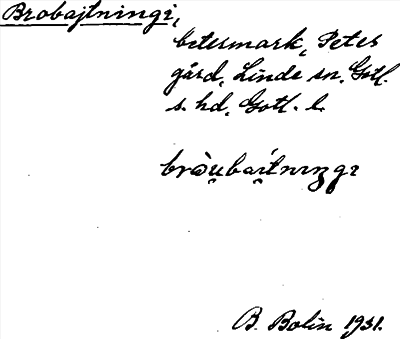 Brobajtningi,
betesmark, Petes
gård, Linde sn. Gotl.
s. hd. Gotl. l.
B. Bolin 1931.